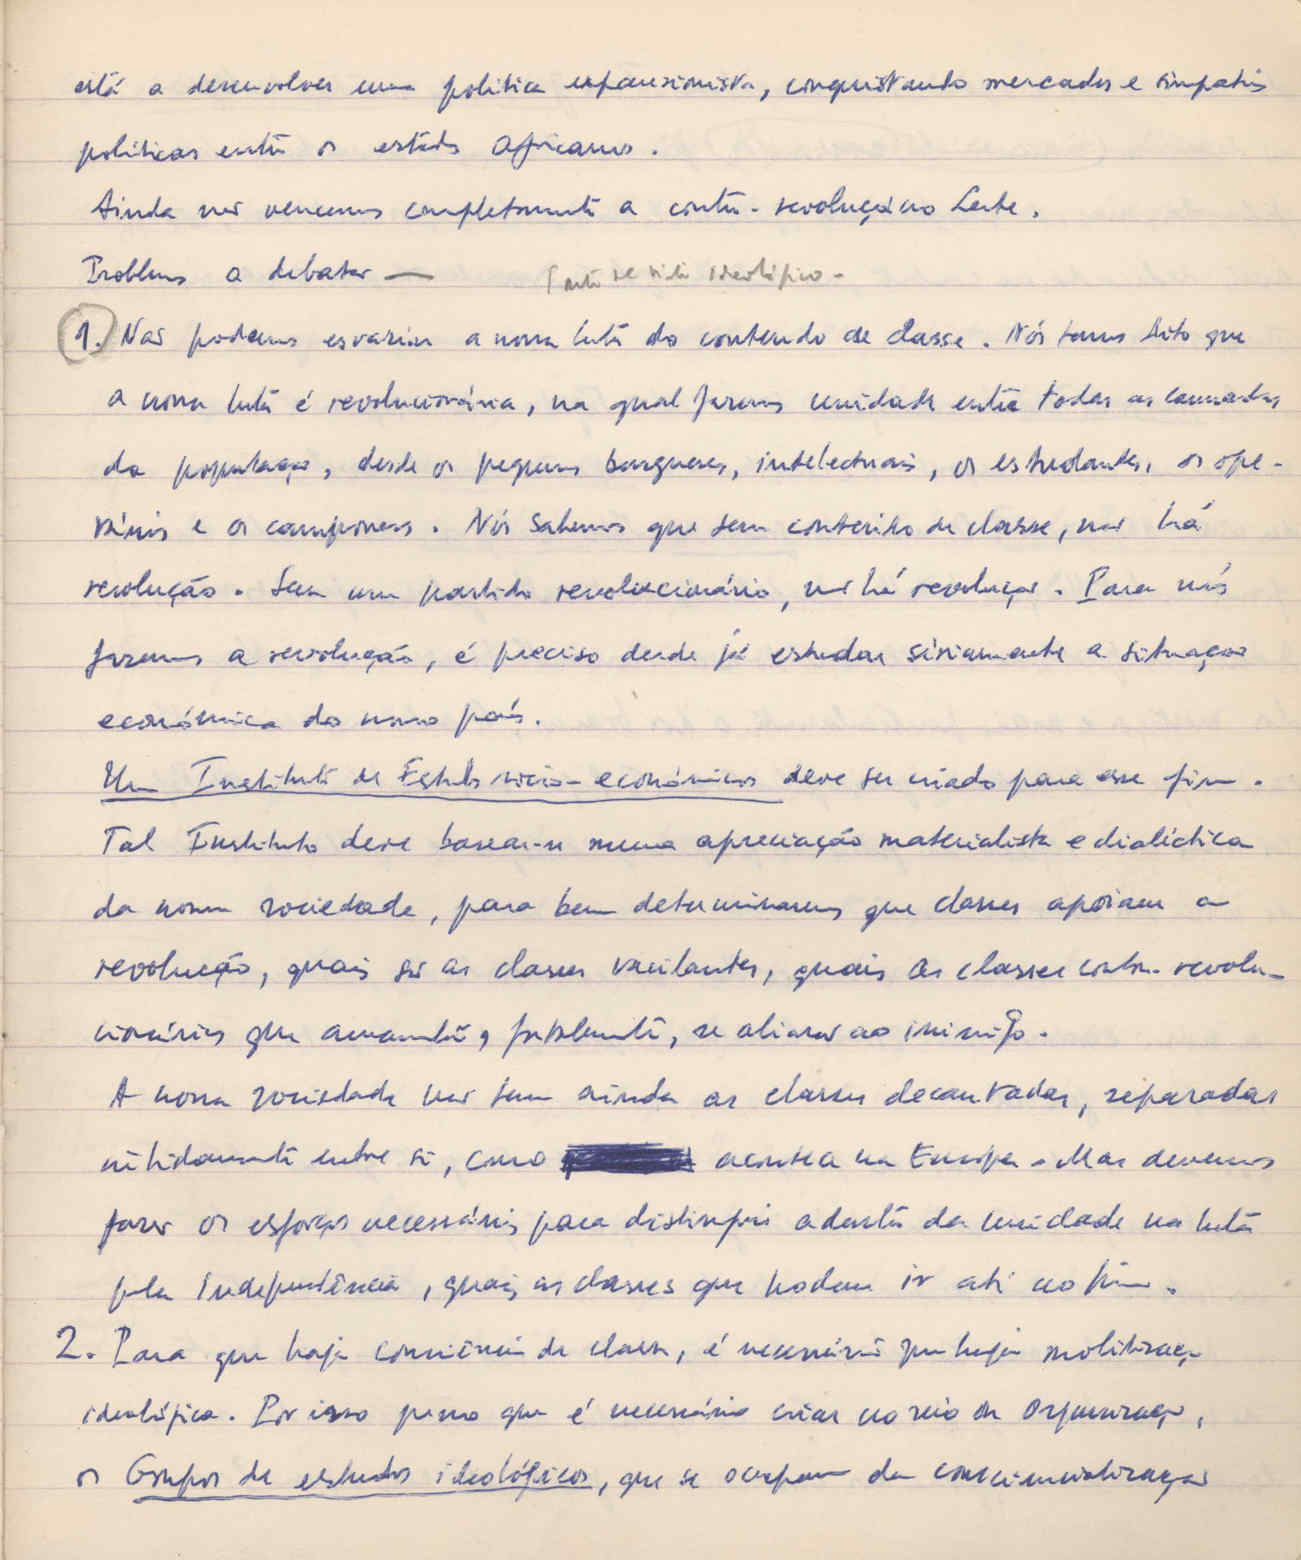 está a desenvolver uma política expansionista, conquistando mercados e simpatias
políticas entre os estados Africanos.
Ainda não vencemos completamente a contra-revolução no Leste.
Problemas a debater —
ideológico -
1. Não podemos esvaziar a nossa luta do conteudo de classe. Nós temos dito que
a nossa luta é revolucionária, na qual fazemos unidade entre todas as camadas
da população, desde os pequenos burgueses, intelectuais, os estudantes, os ope-
rários e os camponeses. Nós sabemos que sem conteúdo de classe, não há
revolução. Sem um partido revolucionário, não há revolução. Para nós
fazermos a revolução, é preciso desde já estudar sèriamente a situação
económica do nosso país.
Um Instituto de Estudos sócio-económicos deve ser criado para esse fim.
Tal Instituto deve basear-se numa apreciação materialista e dialéctica
da nossa sociedade, para bem determinarmos que classes apoiam a
revolução, quais são as classes vacilantes, quais as classes contra-revolu-
cionárias que amanhã, fatalmente, se aliarão ao inimigo.
A nossa sociedade não tem ainda as classes decantadas, separadas
nìtidamente entre si, como acontece na Europa. Mas devemos
fazer os esforços necessários para distinguir adentro da unidade na luta
pela Independência, quais as classes que podem ir até ao fim.
2. Para que haja consciência de classe, é necessário que haja mobilização
ideológica. Por isso penso que é necessário criar no seio da Organização,
os Grupos de estudos ideológicos, que se ocupam da consciencialização